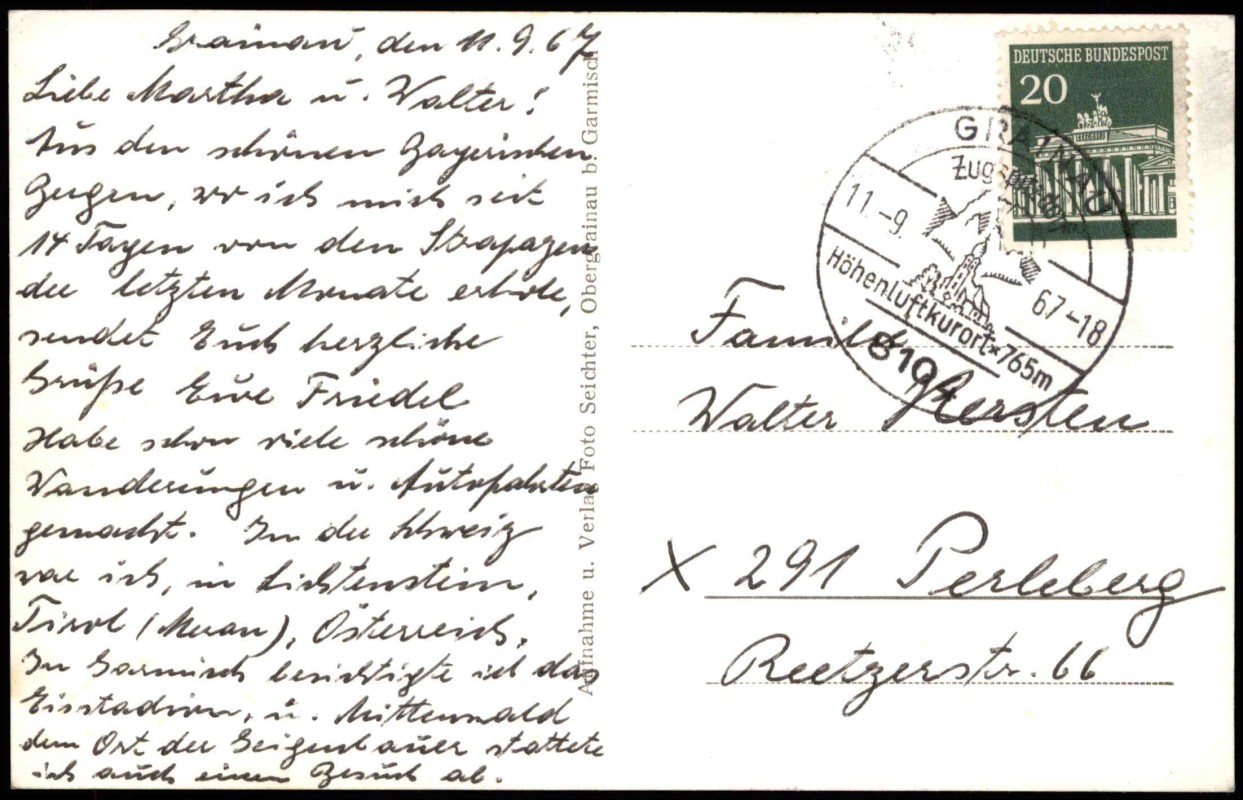 Grainau, den 11.9.67
Liebe Martha u. Walter!
Aus den schönen Bayerischen
Bergen, wo ich mich seit
14 Tagen von den Strapazen
der letzten Monate erhole,
sendet Euch herzliche
Grüße Eure Friedel
Habe schon viele schöne
Wanderungen u. Autofahrten
gemacht. In der Schweiz
war ich, in Lichtenstein,
Tirol (Meran), Österreich,
In Garmisch besichtigte ich das
Eisstadion, u. Mittenwald
dem Ort der Geigenbauer stattete
ich auch einen Besuch ab.
Aufnahme u. Verlag Foto Seichter, Obergrainau b. Garmisch
DEUTSCHE BUNDESPOST
20
GRAINAU
11.-9.
67-18
Höhenluftkurort × 765m
8104
Familie
Walter Gersten
X 291 Perleberg
Reetzerstr. 66